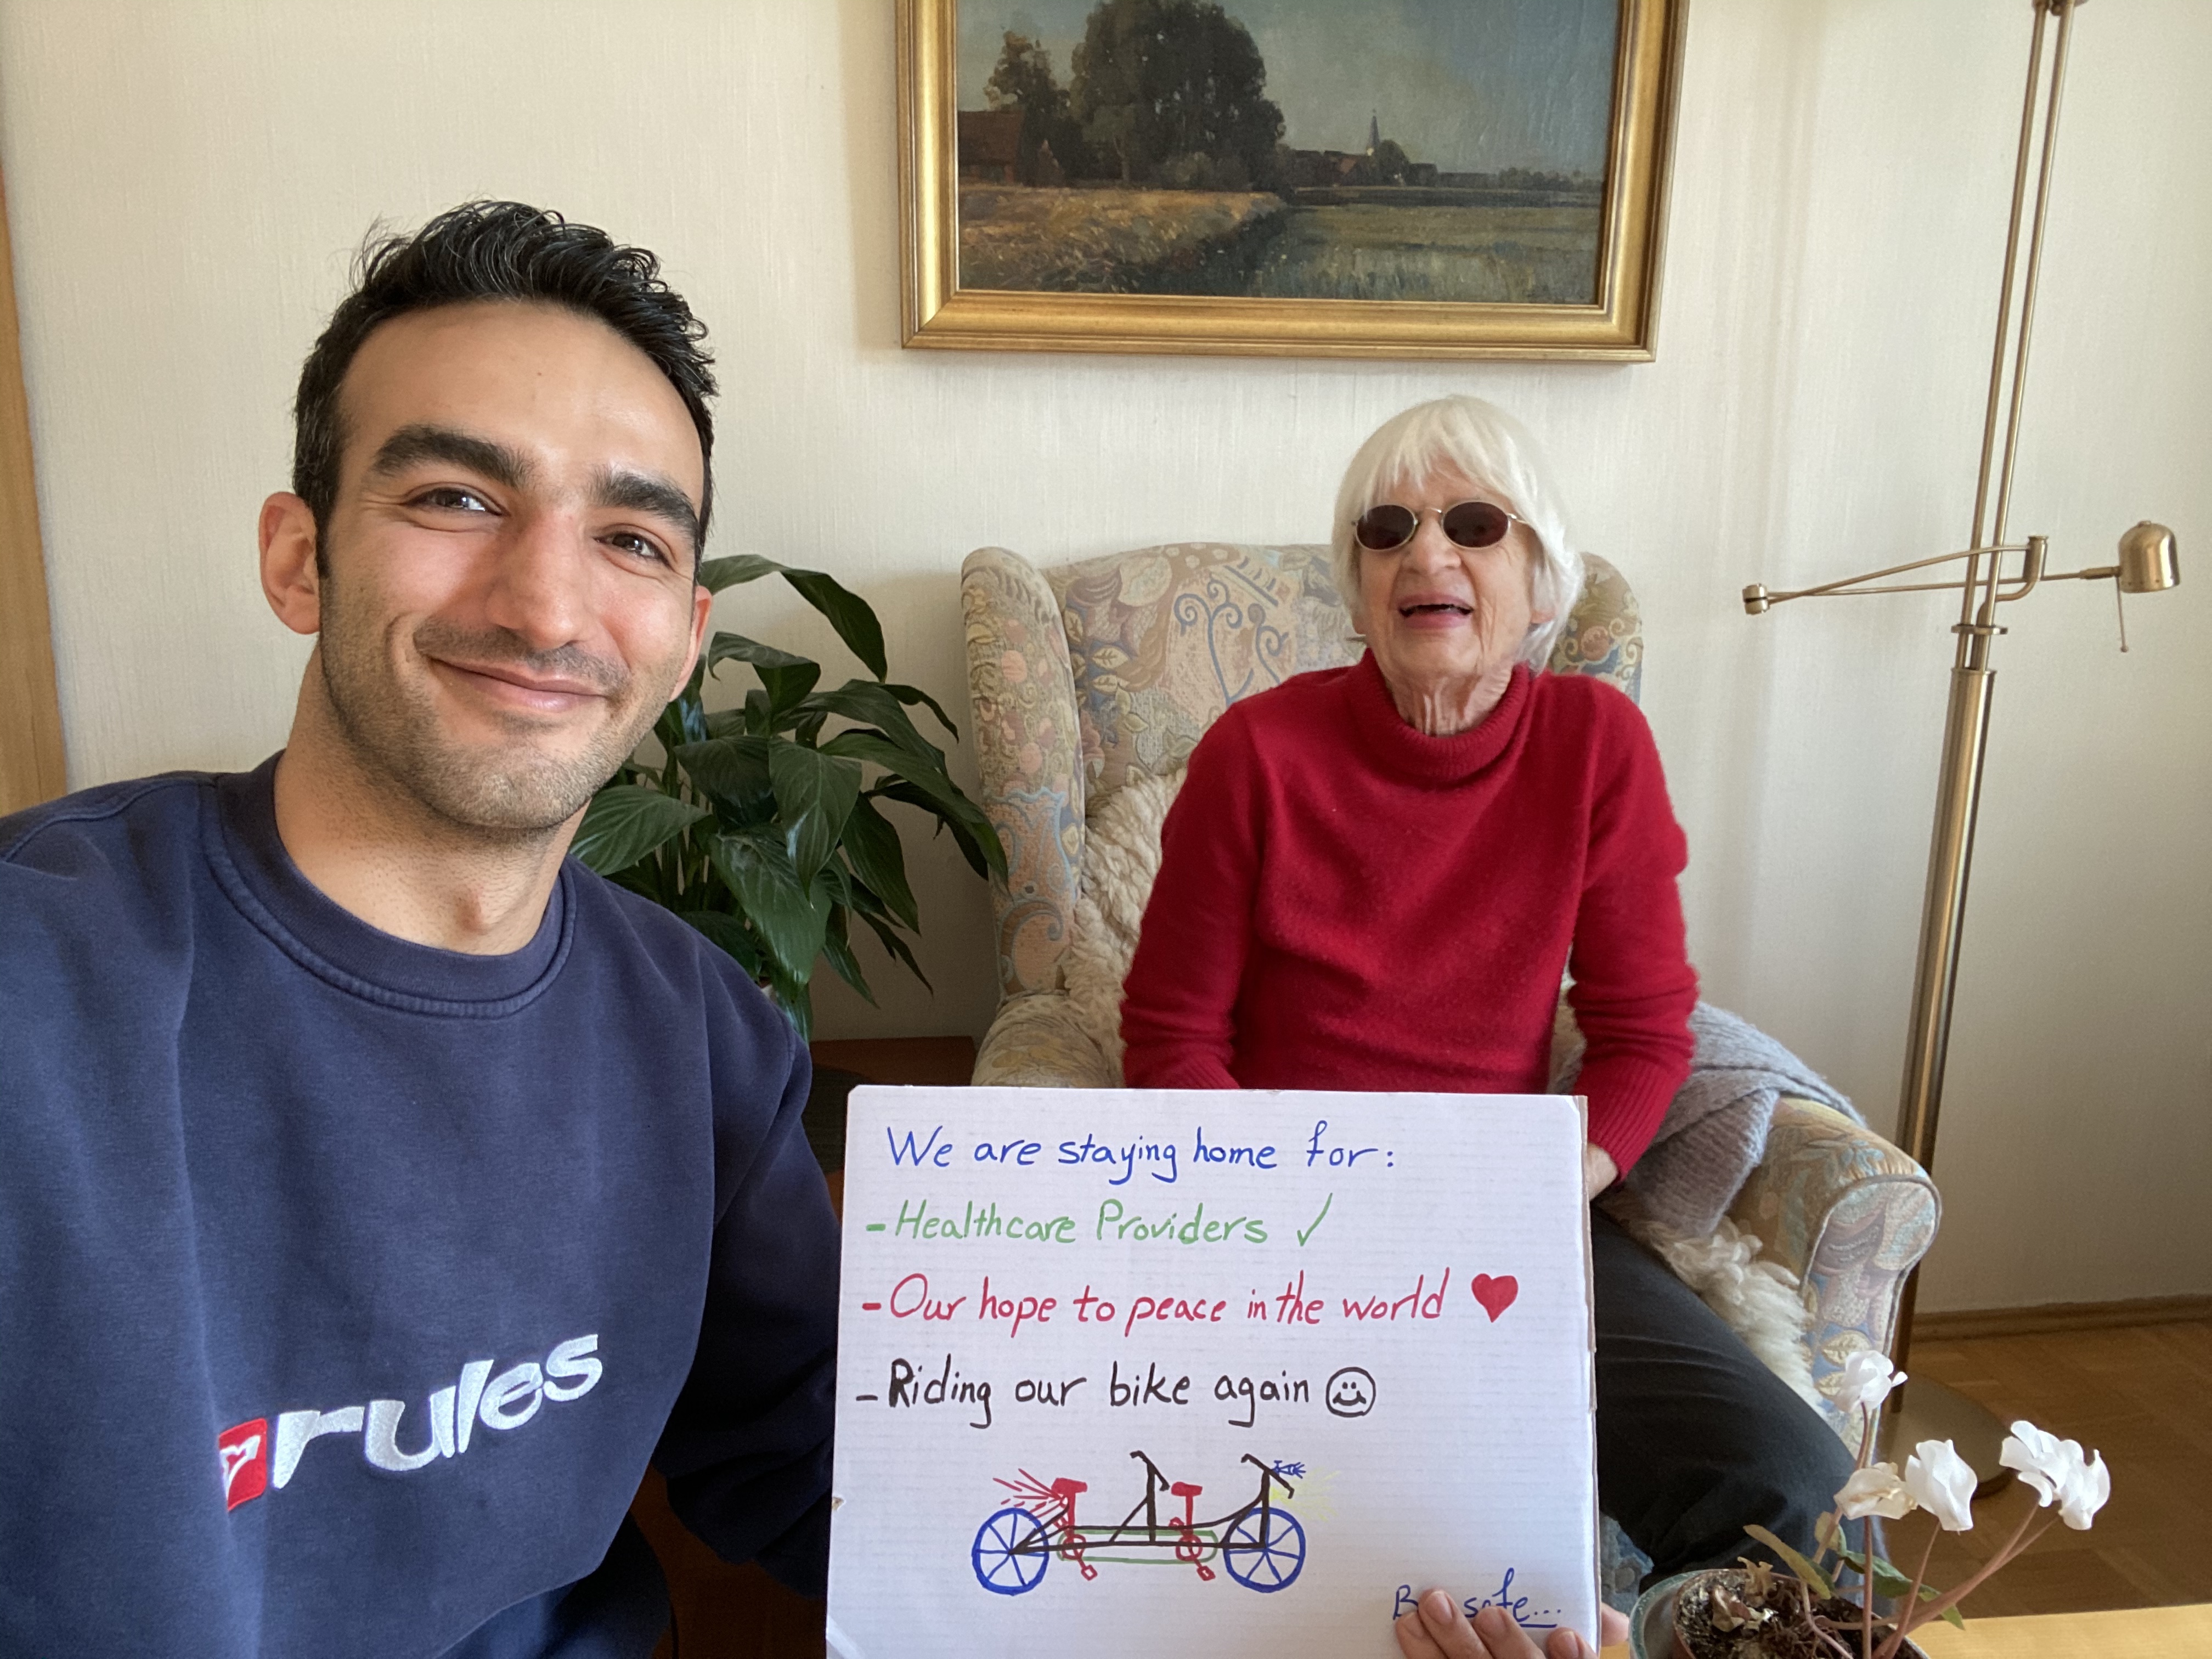 We are staying home for:
- Healthcare Providers ✓
- Our hope to peace in the world ♥
- Riding our bike again ☺
safe...
rules